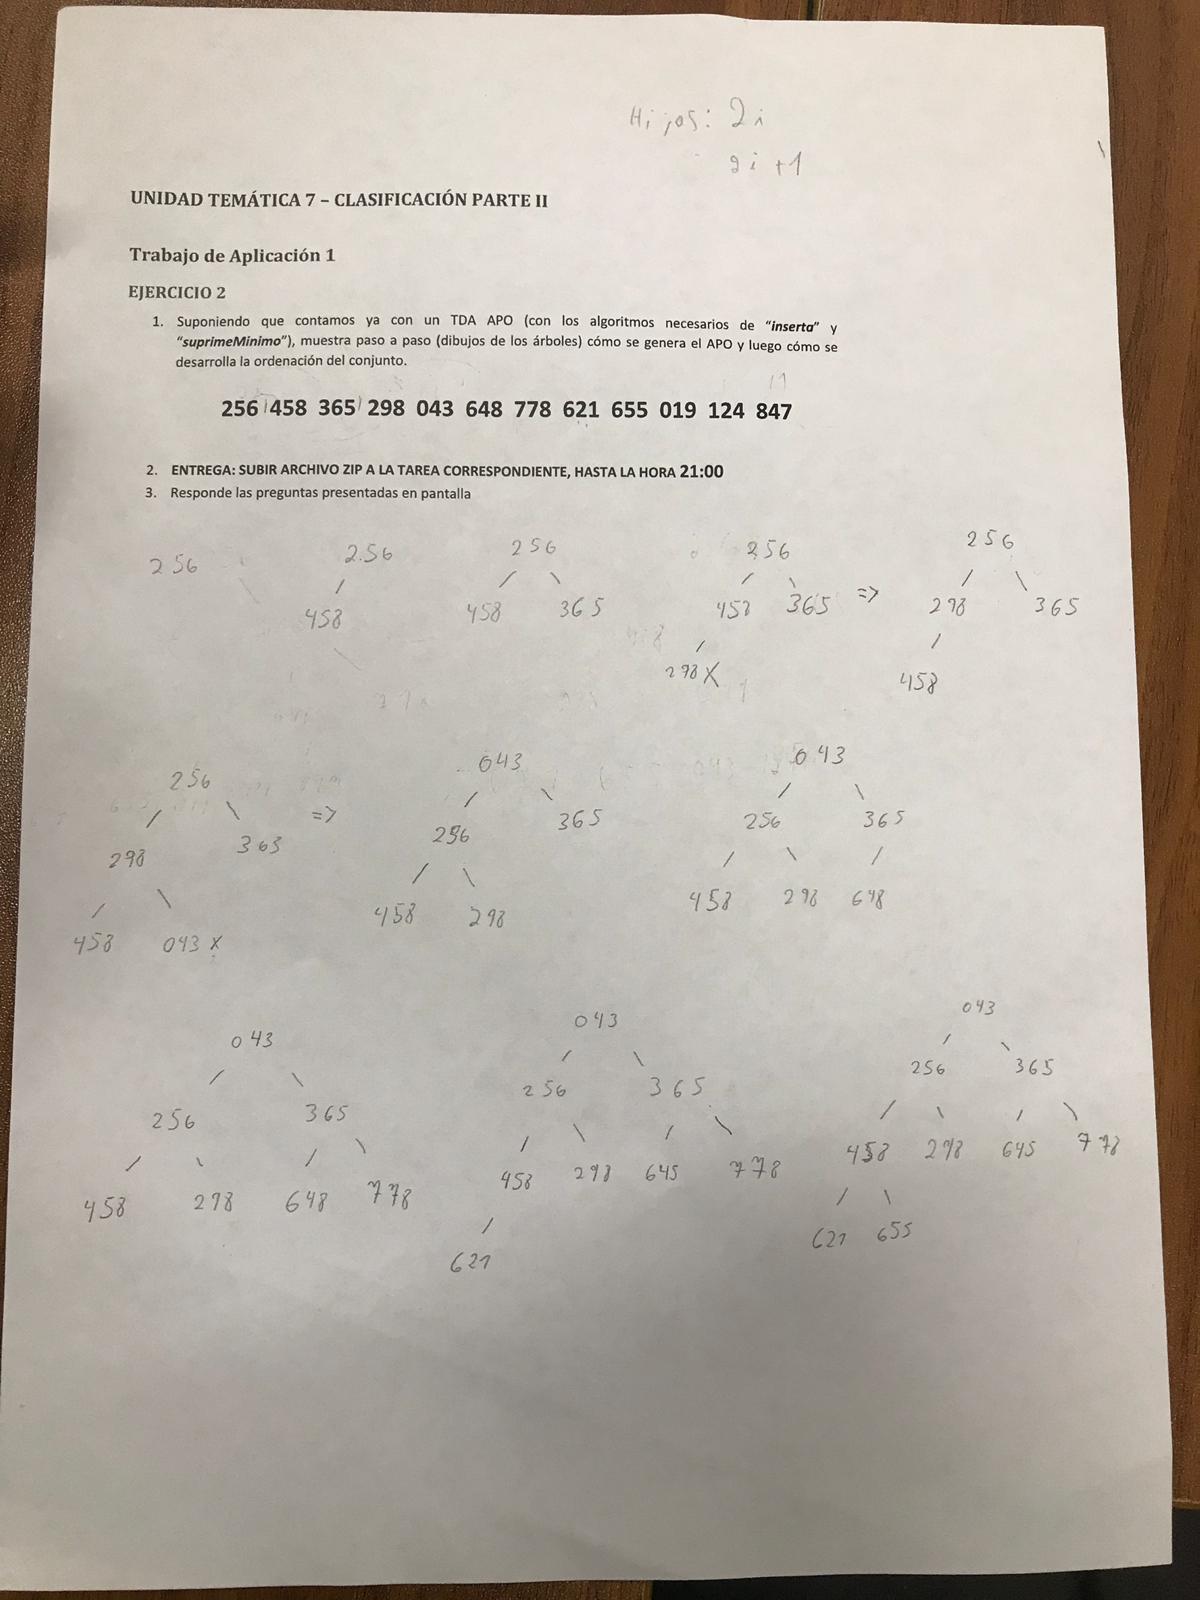 Hijos: 2i
2i +1
UNIDAD TEMÁTICA 7 – CLASIFICACIÓN PARTE II
Trabajo de Aplicación 1
EJERCICIO 2
1. Suponiendo que contamos ya con un TDA APO (con los algoritmos necesarios de “inserta” y
“suprimeMinimo”), muestra paso a paso (dibujos de los árboles) cómo se genera el APO y luego cómo se
desarrolla la ordenación del conjunto.
256 458 365 298 043 648 778 621 655 019 124 847
2. ENTREGA: SUBIR ARCHIVO ZIP A LA TAREA CORRESPONDIENTE, HASTA LA HORA 21:00
3. Responde las preguntas presentadas en pantalla
256 256 256 256 256
458 458 365 458 365 => 298 365
298 X 458
256 043 043
298 365 => 256 365 256 365
458 043 X 458 298 458 298 648
043 043 043
256 365 256 365 256 365
458 298 648 778 458 298 645 778 458 298 645 778
621 621 655